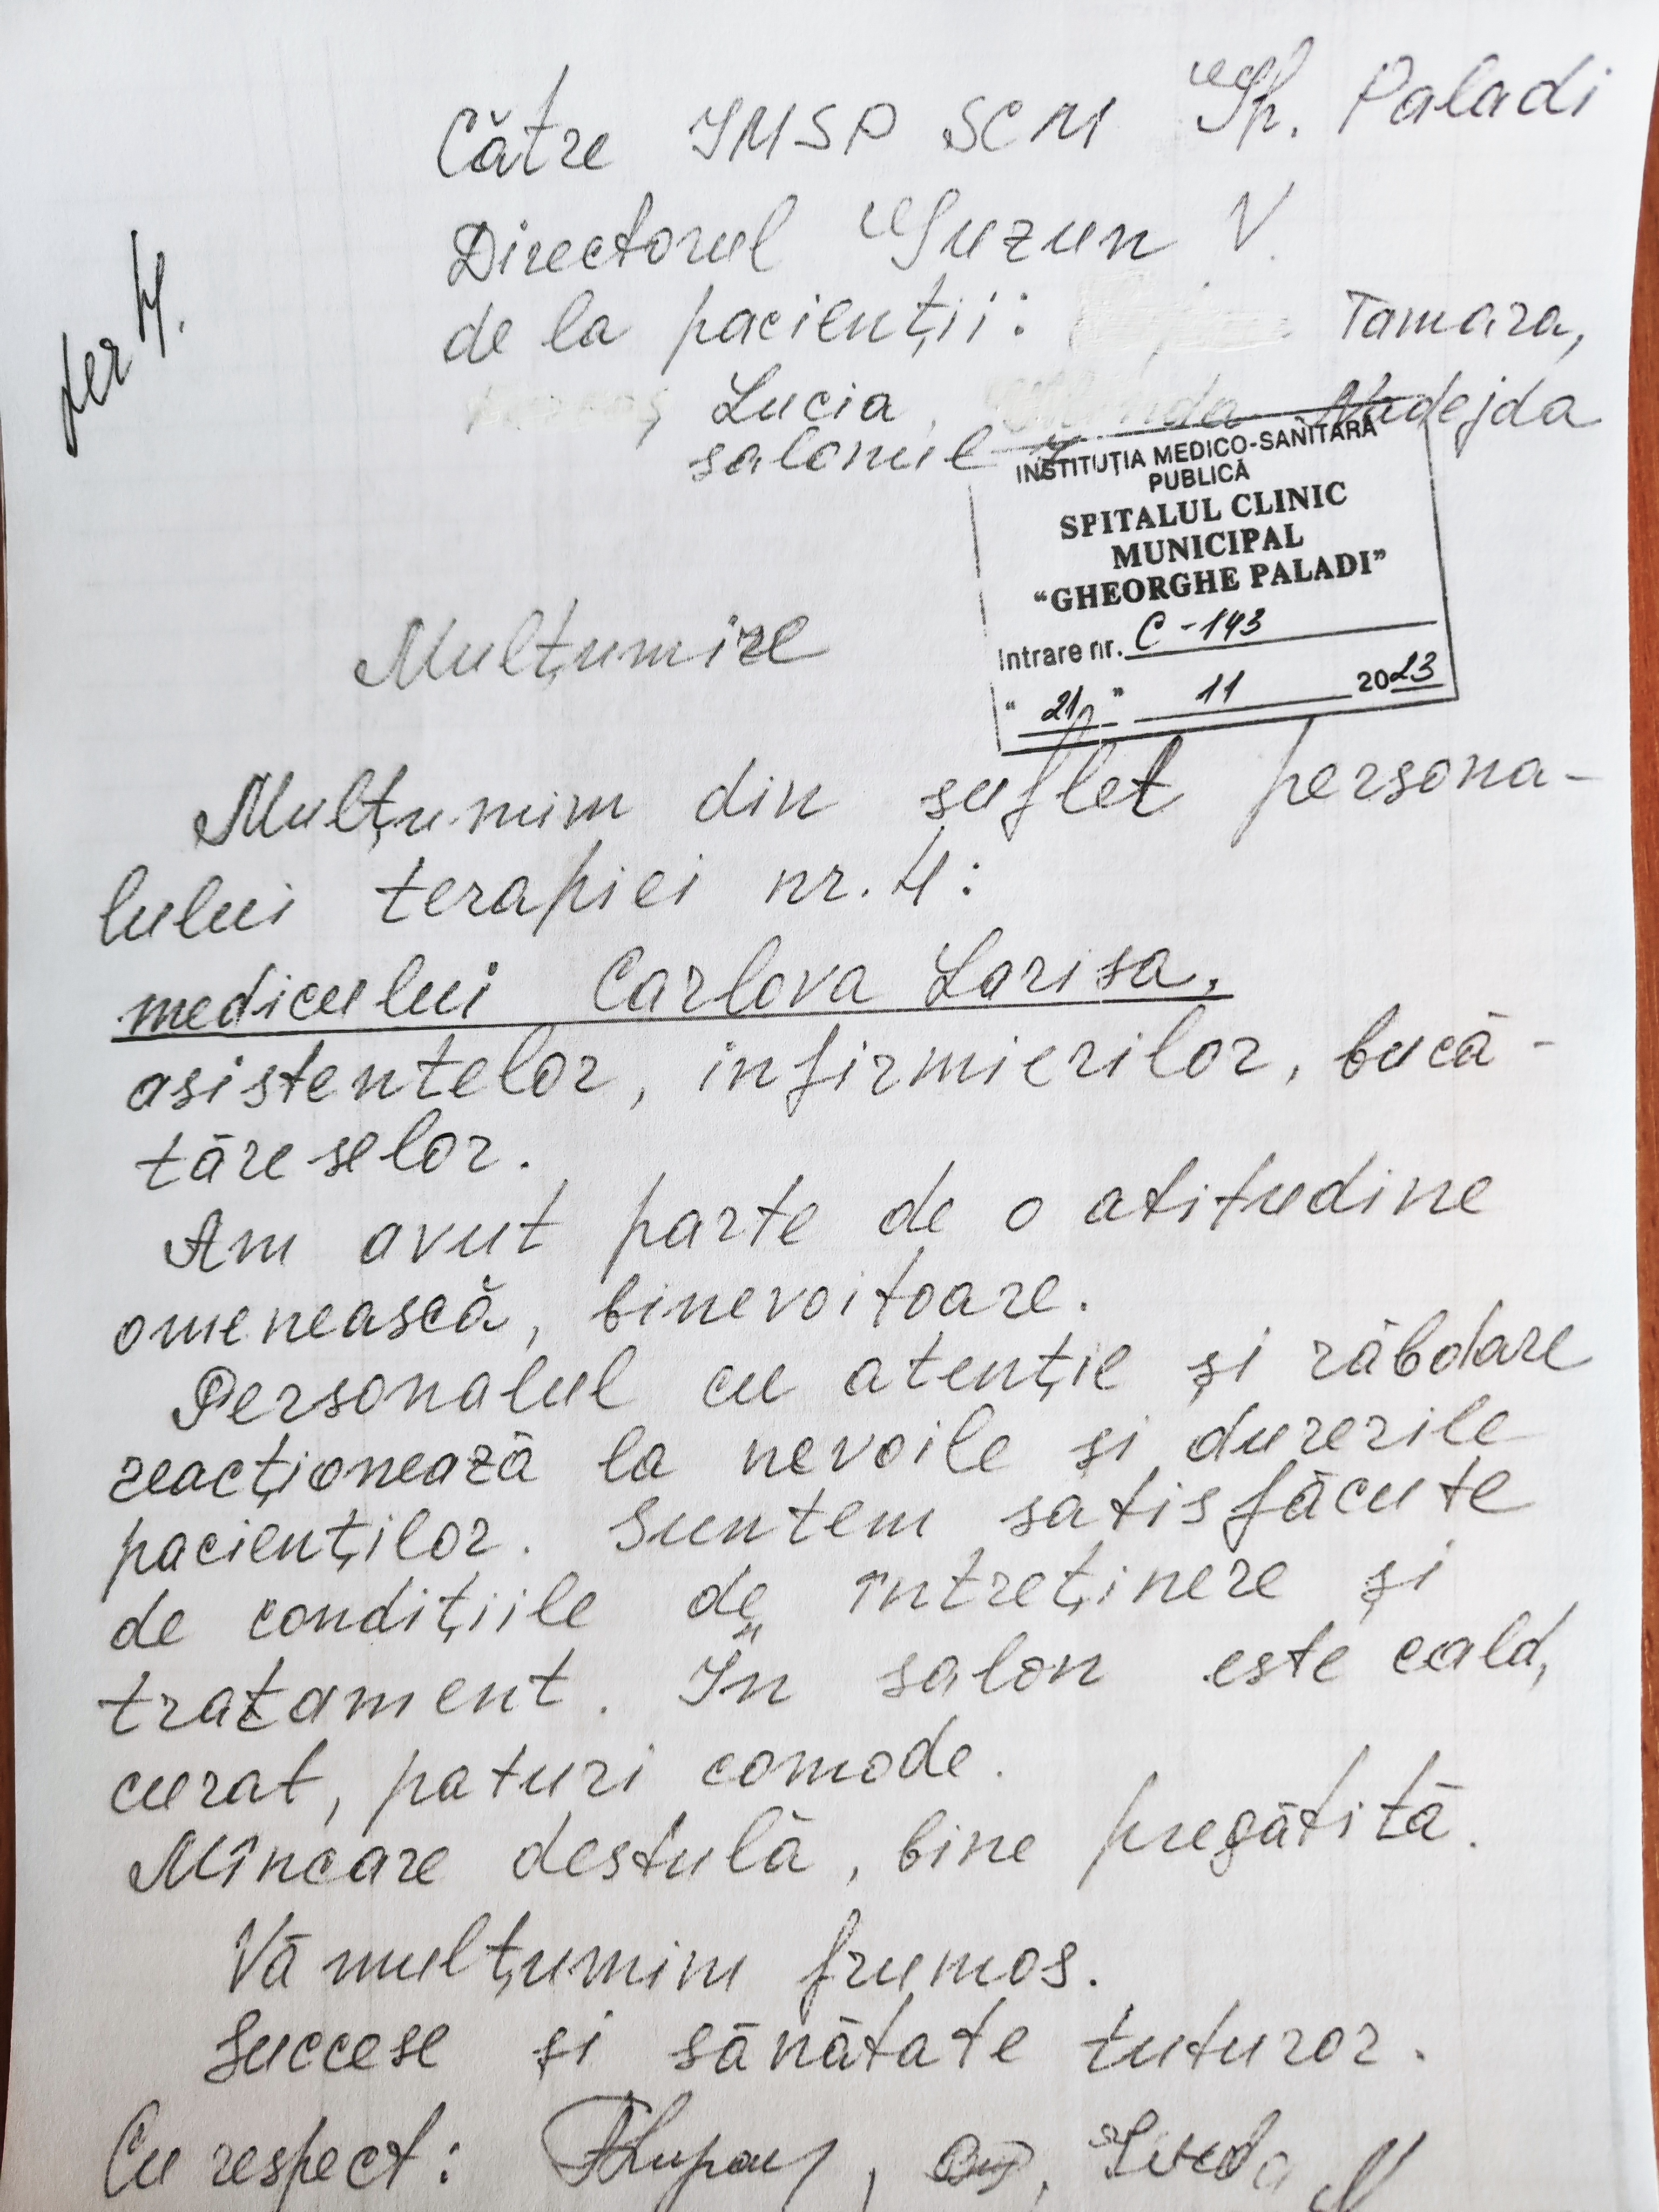 Către IMSP SCM Gh. Paladi
Directorul Guzun V.
de la pacienții: Tamara,
Lucia, Nadejda
salonul
ter 4.
INSTITUȚIA MEDICO-SANITARĂ
PUBLICĂ
SPITALUL CLINIC
MUNICIPAL
“GHEORGHE PALADI”
Intrare nr. C-143
“ 21 ” 11 2023
Mulțumire
Mulțumim din suflet persona-
lului terapiei nr. 4:
medicului Carlova Larisa,
asistentelor, infirmierilor, bucă-
tăreselor.
Am avut parte de o atitudine
omenească, binevoitoare.
Personalul cu atenție și răbdare
reacționează la nevoile și durerile
pacienților. Suntem satisfăcute
de condițiile de întreținere și
tratament. În salon este cald,
curat, paturi comode.
Mîncare destulă, bine pregătită.
Vă mulțumim frumos.
Succese și sănătate tuturor.
Cu respect: